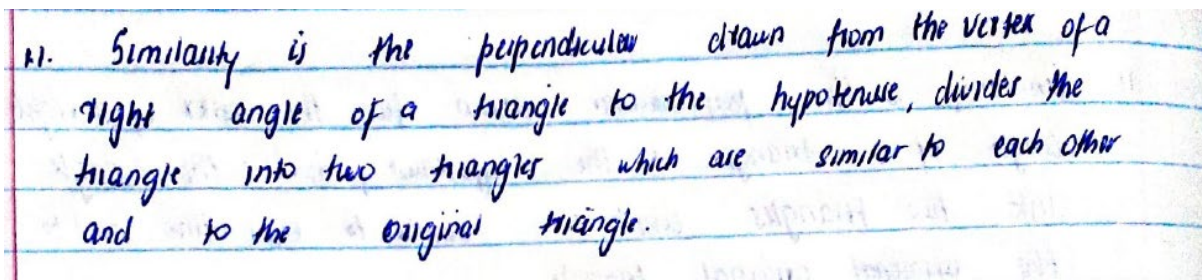 11. Similarity is the perpendicular drawn from the vertex of a
right angle of a triangle to the hypotenuse, divides the
triangle into two triangles which are similar to each other
and to the original triangle.